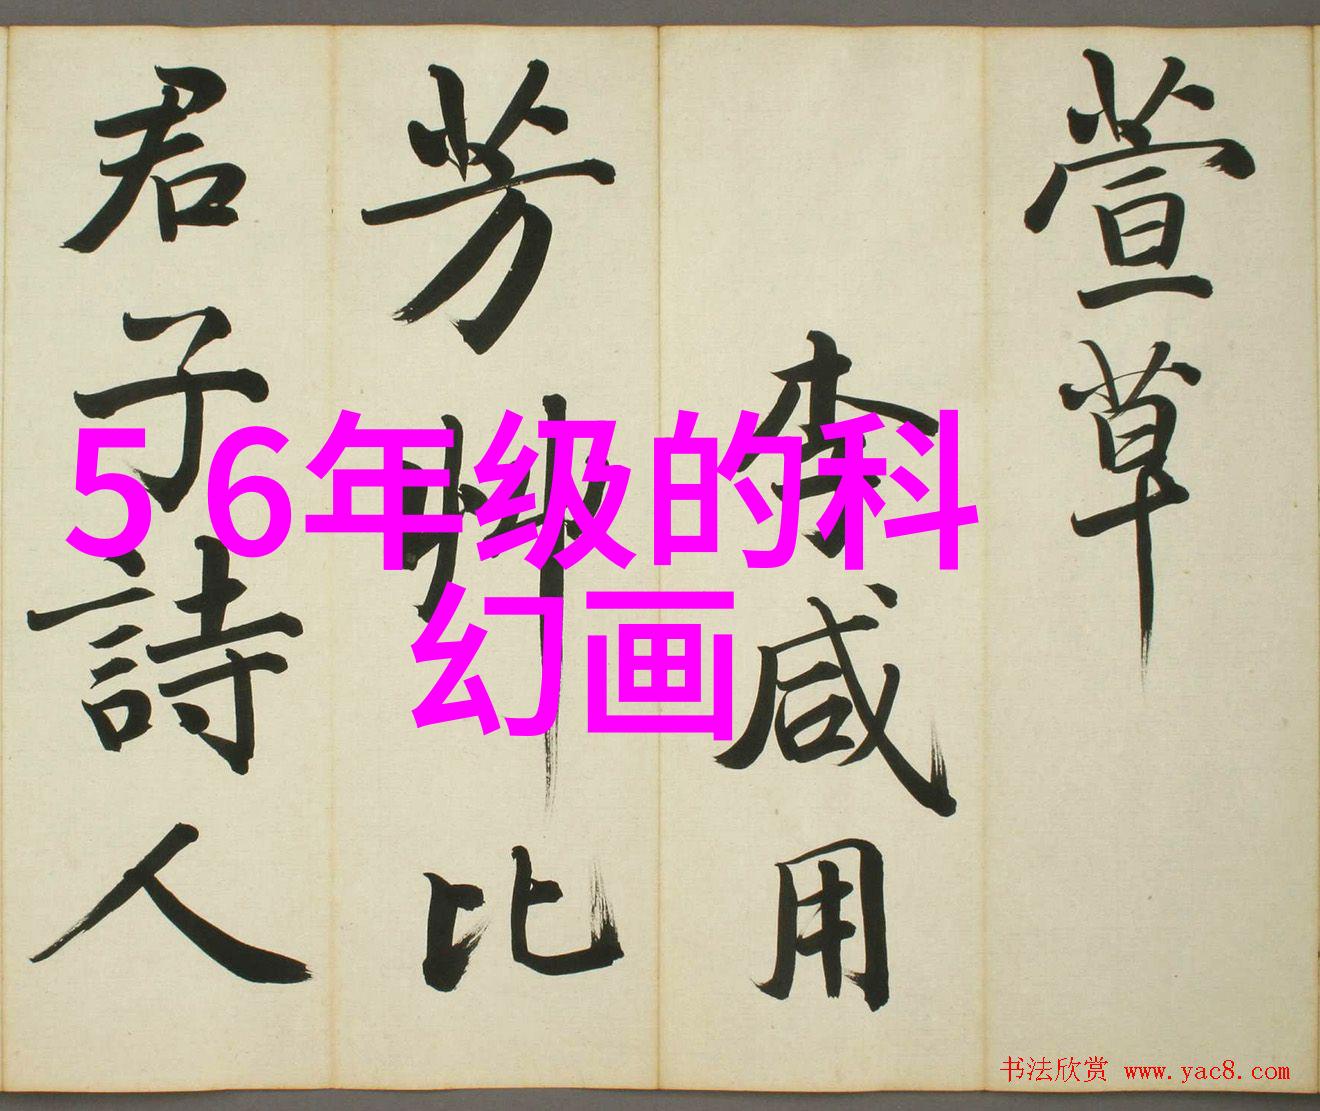 萱草
李咸用
芳草比
君子詩人
5 6年级的科
幻画
书法欣赏 www.yac8.com